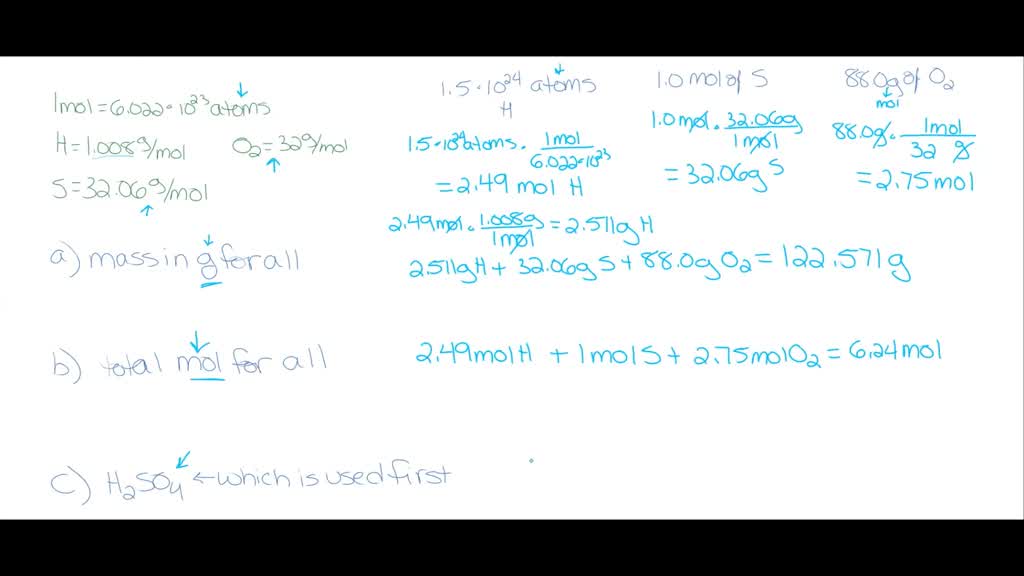 1mol = 6.022 · 10²³ atoms
H = 1.008 g/mol    O₂ = 32 g/mol
S = 32.06 g/mol
1.5 · 10²⁴ atoms
H
1.5 · 10²⁴ atoms · 1mol / 6.022 · 10²³
= 2.49 mol H
2.49 mol · 1.008g / 1mol = 2.511g H
1.0 mol of S
1.0 mol · 32.06g / 1mol
= 32.06g S
88.0g of O₂
mol
88.0g · 1mol / 32 g
= 2.75 mol
a) mass in g for all
2.511g H + 32.06g S + 88.0g O₂ = 122.571g
b) total mol for all
2.49 mol H + 1 mol S + 2.75 mol O₂ = 6.24 mol
c) H₂SO₄ ← which is used first